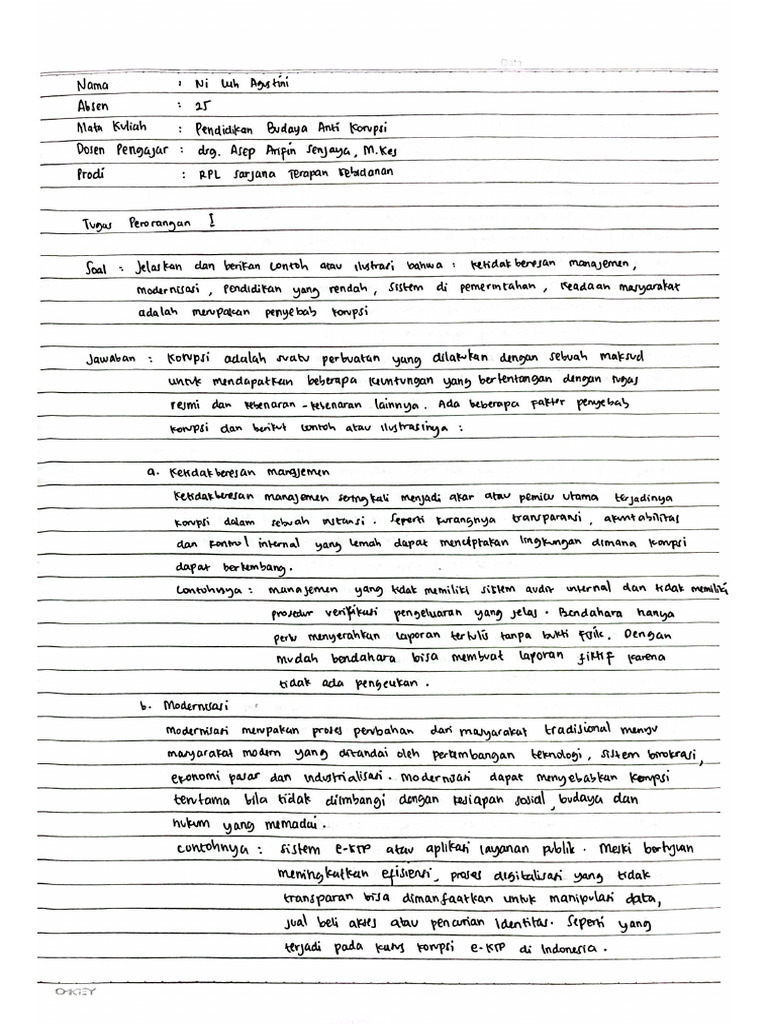 Date
Nama : Ni Luh Agustini
Absen : 25
Mata Kuliah : Pendidikan Budaya Anti Korupsi
Dosen Pengajar : drg. Asep Aripin Senjaya, M.Kes
Prodi : RPL Sarjana Terapan Kebidanan
Tugas Perorangan I
Soal : Jelaskan dan berikan contoh atau ilustrasi bahwa : ketidakberesan manajemen,
modernisasi, pendidikan yang rendah, sistem di pemerintahan, keadaan masyarakat
adalah merupakan penyebab korupsi
Jawaban : Korupsi adalah suatu perbuatan yang dilakukan dengan sebuah maksud
untuk mendapatkan beberapa keuntungan yang bertentangan dengan tugas
resmi dan kebenaran-kebenaran lainnya. Ada beberapa fakter penyebab
korupsi dan berikut contoh atau ilustrasinya :
a. Ketidakberesan manajemen
Ketidakberesan manajemen seringkali menjadi akar atau pemicu utama terjadinya
korupsi dalam sebuah instansi. Seperti kurangnya transparansi, akuntabilitas
dan kontrol internal yang lemah dapat menciptakan lingkungan dimana korupsi
dapat berkembang.
Contohnya : manajemen yang tidak memiliki sistem audit internal dan tidak memiliki
prosedur verifikasi pengeluaran yang jelas. Bendahara hanya
perlu menyerahkan laporan tertulis tanpa bukti fisik. Dengan
mudah bendahara bisa membuat laporan fiktif karena
tidak ada pengecekan.
b. Modernisasi
Modernisasi merupakan proses perubahan dari masyarakat tradisional menuju
masyarakat modern yang ditandai oleh perkembangan teknologi, sistem birokrasi,
ekonomi pasar dan industrialisasi. Modernisasi dapat menyebabkan korupsi
terutama bila tidak diimbangi dengan kesiapan sosial, budaya dan
hukum yang memadai.
Contohnya : sistem e-KTP atau aplikasi layanan publik. Meski bertujuan
meningkatkan efisiensi, proses digitalisasi yang tidak
transparan bisa dimanfaatkan untuk manipulasi data,
jual beli akses atau pencurian identitas. Seperti yang
terjadi pada kasus korupsi e-KTP di Indonesia.
O-KEY